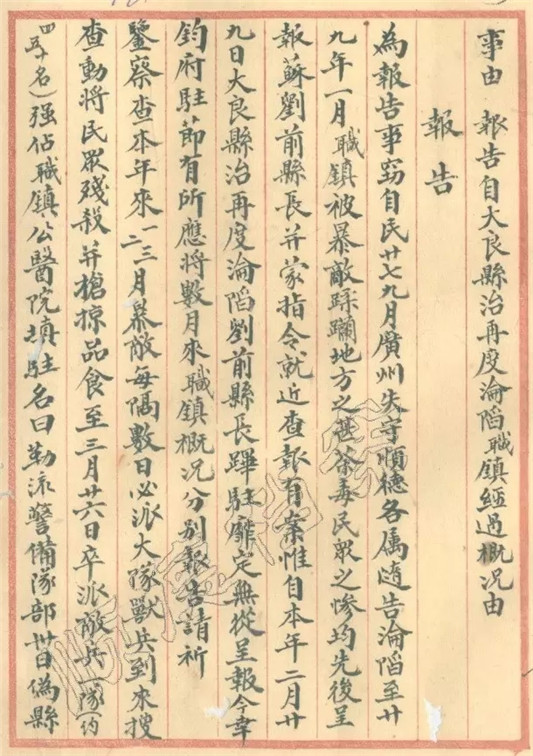 事由 報告自大良縣治再度淪陷職鎮經過概况由
報告
為報告事竊自民廿七九月廣州失守順德各属随告淪陷至廿
九年一月職鎮被暴敵蹂躪地方之甚荼毒民眾之慘均先後呈
報蘇劉前縣長并蒙指令就近查報有案惟自本年二月廿
九日大良縣治再度淪陷劉前縣長蹕駐靡定無從呈報今幸
鈞府駐節有所應將數月來職鎮概况分別報告請祈
鑒察查本年來一二三月暴敵每隔數日必派大隊獸兵到來搜
查動將民眾殘殺并搶掠品食至三月廿六日卒派敵兵一隊(約
四五十名)强佔職鎮公醫院填駐名曰勒流警備隊部卅日偽縣